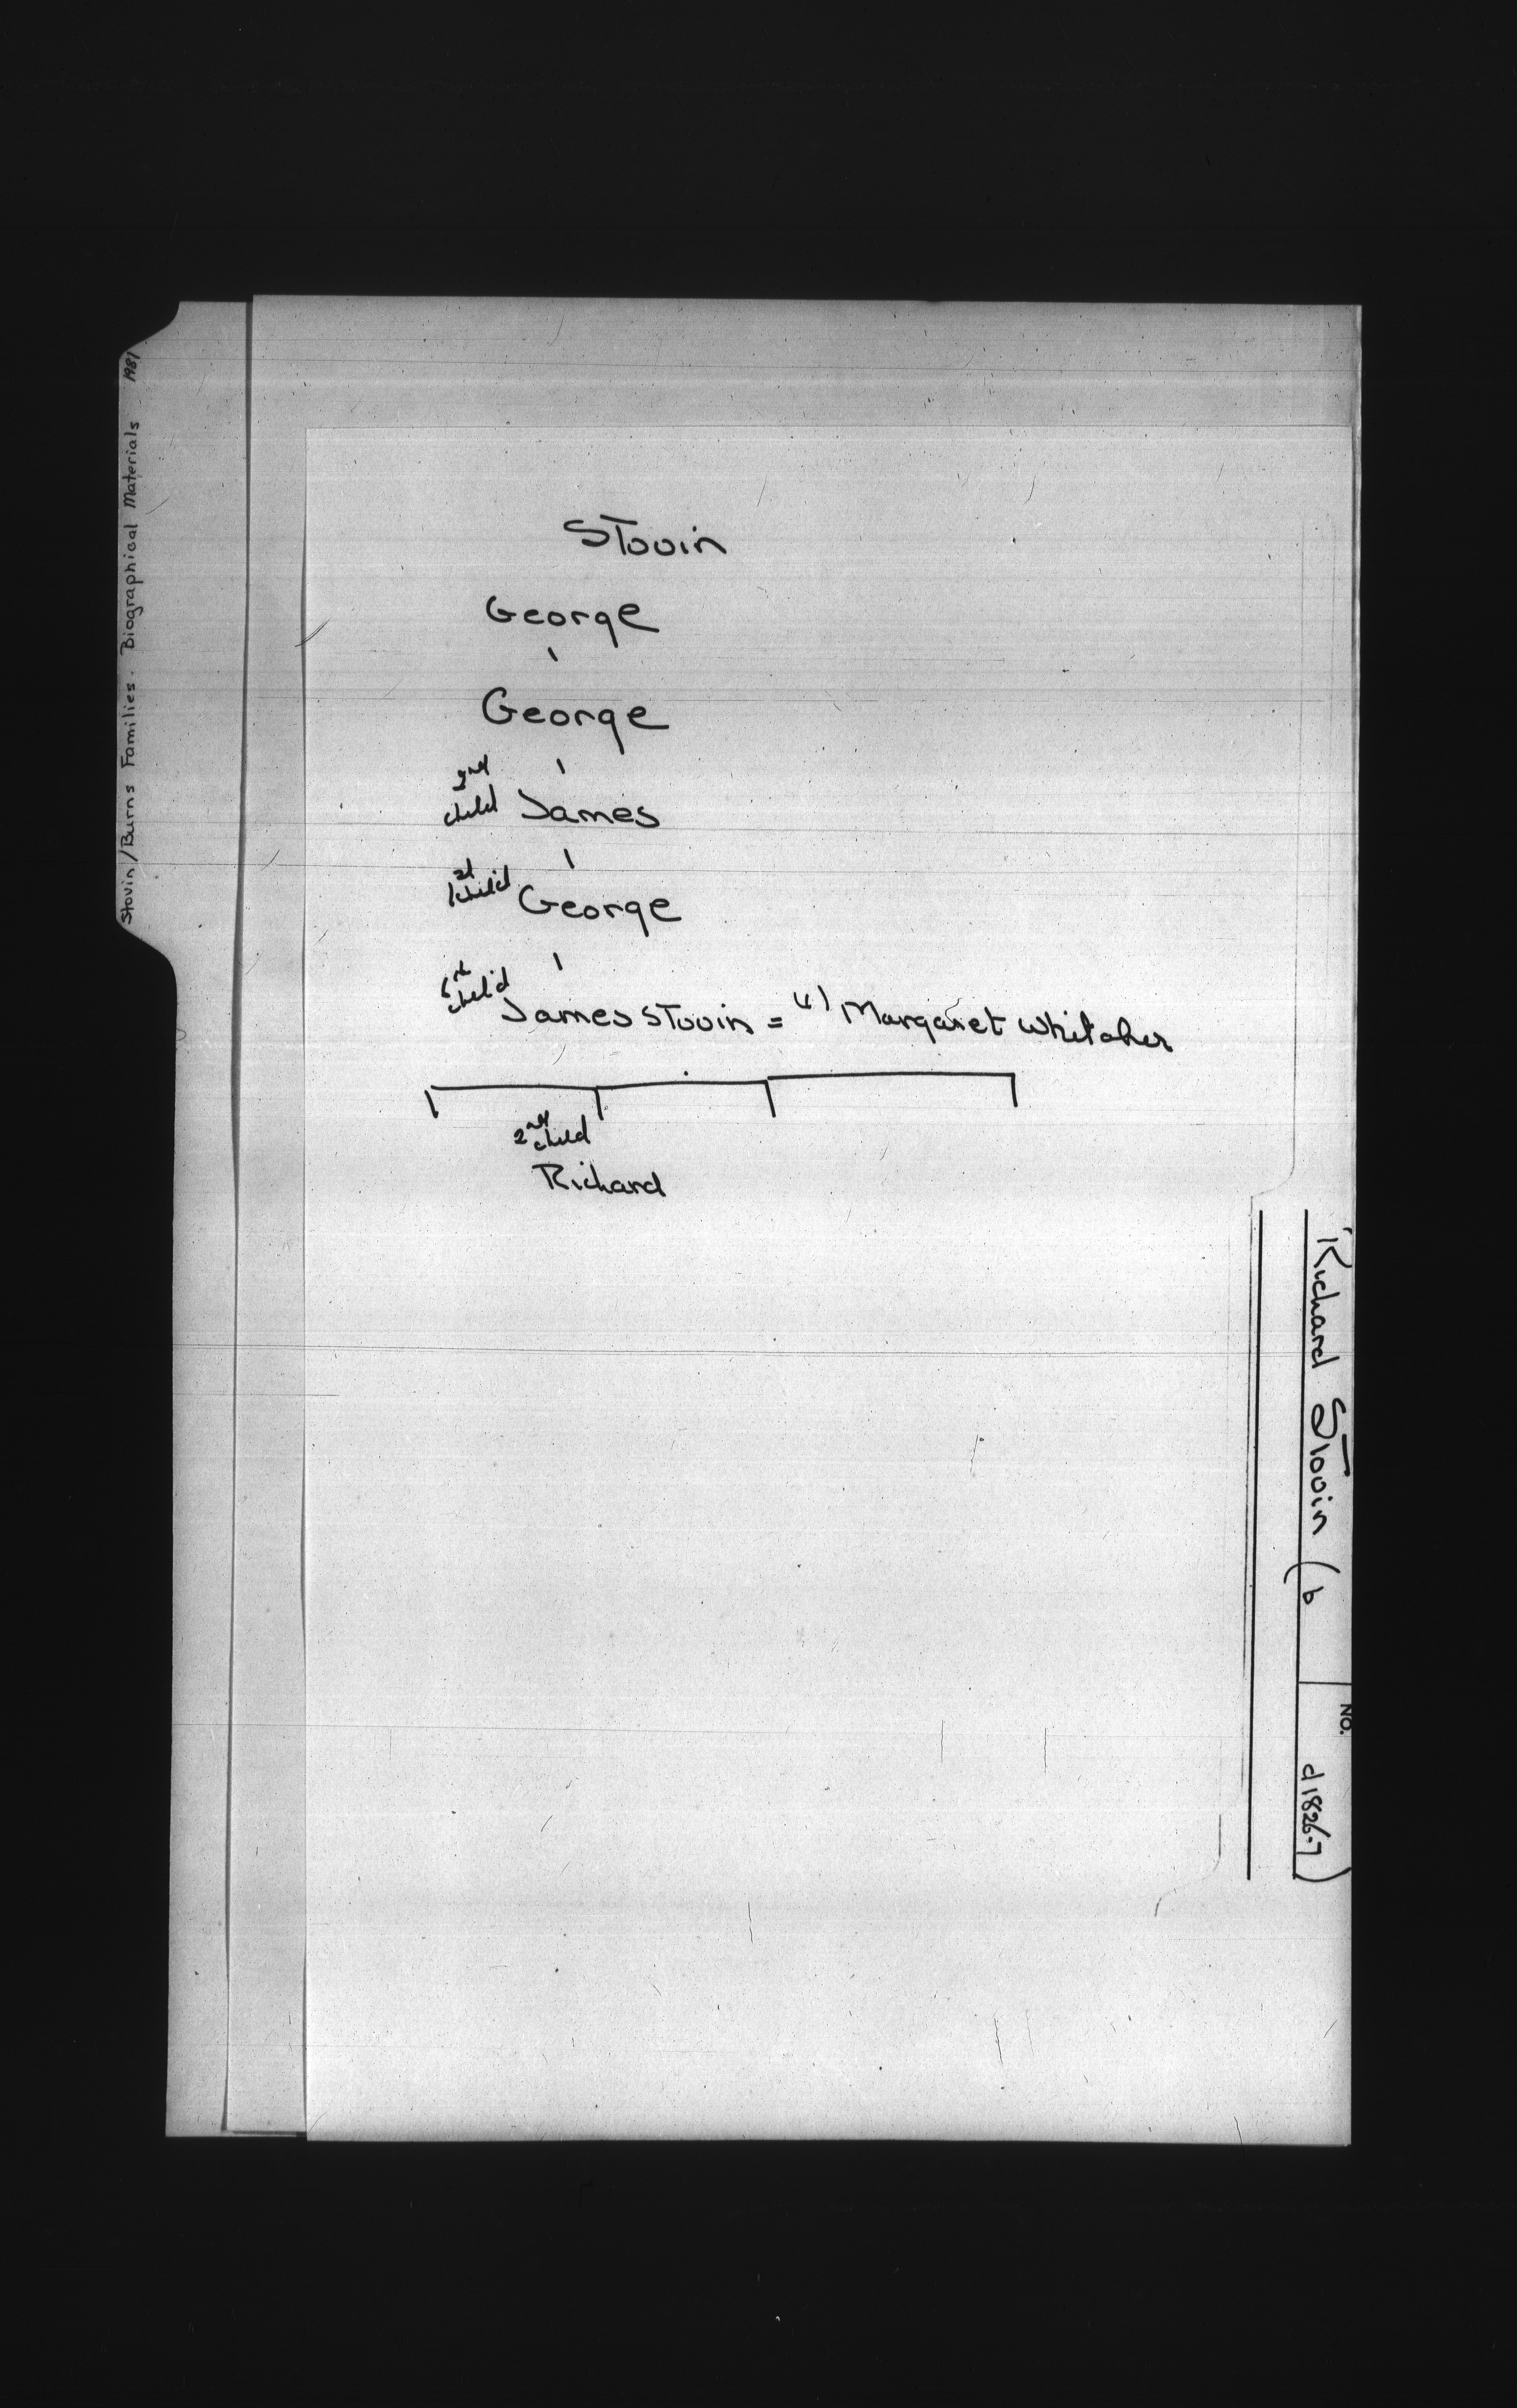 Stovin/Burns Families. Biographical Materials 1981
Stovin
George
George
2nd child James
1st child George
6th child James Stovin = (1) Margaret Whitaker
2nd child
Richard
Richard Stovin (b
NO.
d 1826-7)